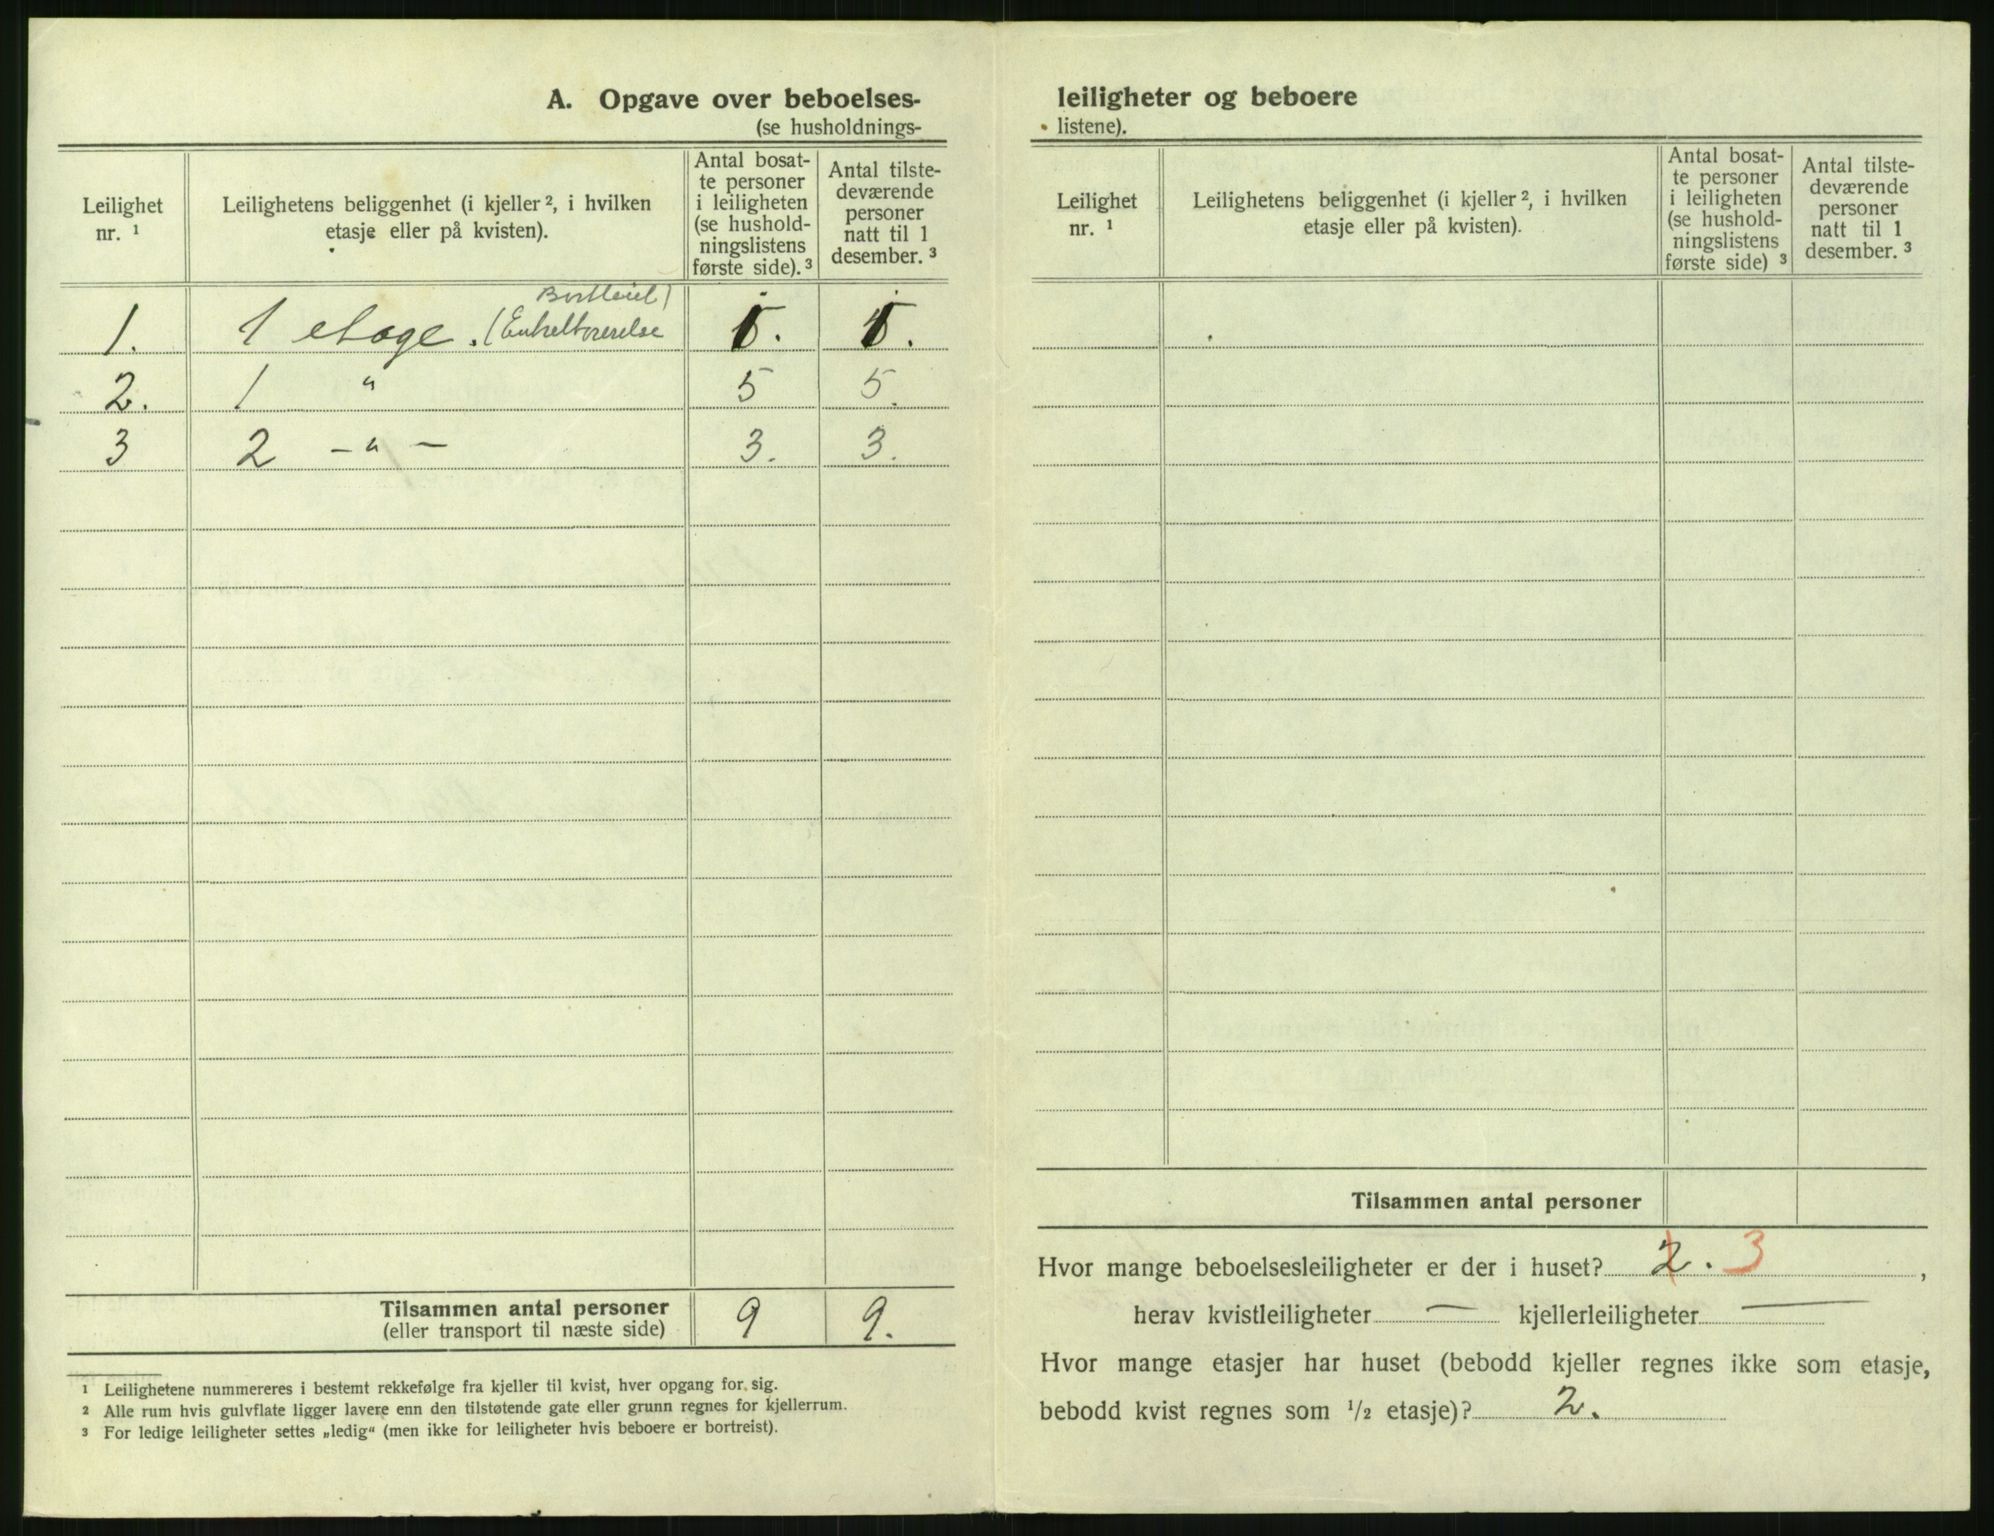 A. Opgave over beboelses-
(se husholdnings-
Leilighet
nr. ¹
Leilighetens beliggenhet (i kjeller ², i hvilken
etasje eller på kvisten).
Antal bosat-
te personer
i leiligheten
(se hushold-
ningslistens
første side). ³
Antal tilste-
deværende
personer
natt til 1
desember. ³
1. 1 etage. (Enkeltværelse 1. 1.
2. 1 " 5 5.
3 2 – " – 3. 3.
Tilsammen antal personer 9 9.
(eller transport til næste side)
¹ Leilighetene nummereres i bestemt rekkefølge fra kjeller til kvist, hver opgang for sig.
² Alle rum hvis gulvflate ligger lavere enn den tilstøtende gate eller grunn regnes for kjellerrum.
³ For ledige leiligheter settes „ledig“ (men ikke for leiligheter hvis beboere er bortreist).
leiligheter og beboere
listene).
Leilighet
nr. ¹
Leilighetens beliggenhet (i kjeller ², i hvilken
etasje eller på kvisten).
Antal bosat-
te personer
i leiligheten
(se hushold-
ningslistens
første side) ³
Antal tilste-
deværende
personer
natt til 1
desember. ³
Tilsammen antal personer
Hvor mange beboelsesleiligheter er der i huset? 2. 3 ,
herav kvistleiligheter — kjellerleiligheter —
Hvor mange etasjer har huset (bebodd kjeller regnes ikke som etasje,
bebodd kvist regnes som ½ etasje)? 2.